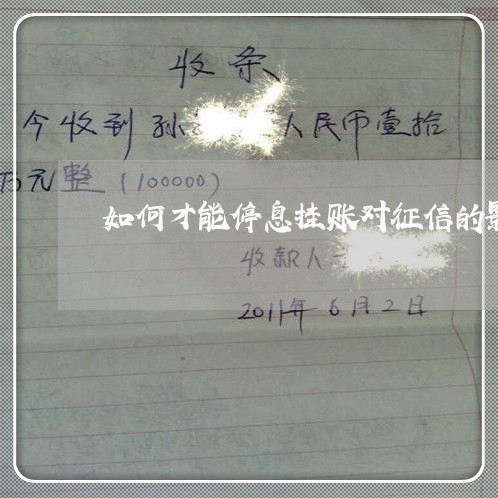 收条
今收到孙 人民币壹拾
万元整（100000）
如何才能停息挂账对征信的影
收款人
2011年6月2日